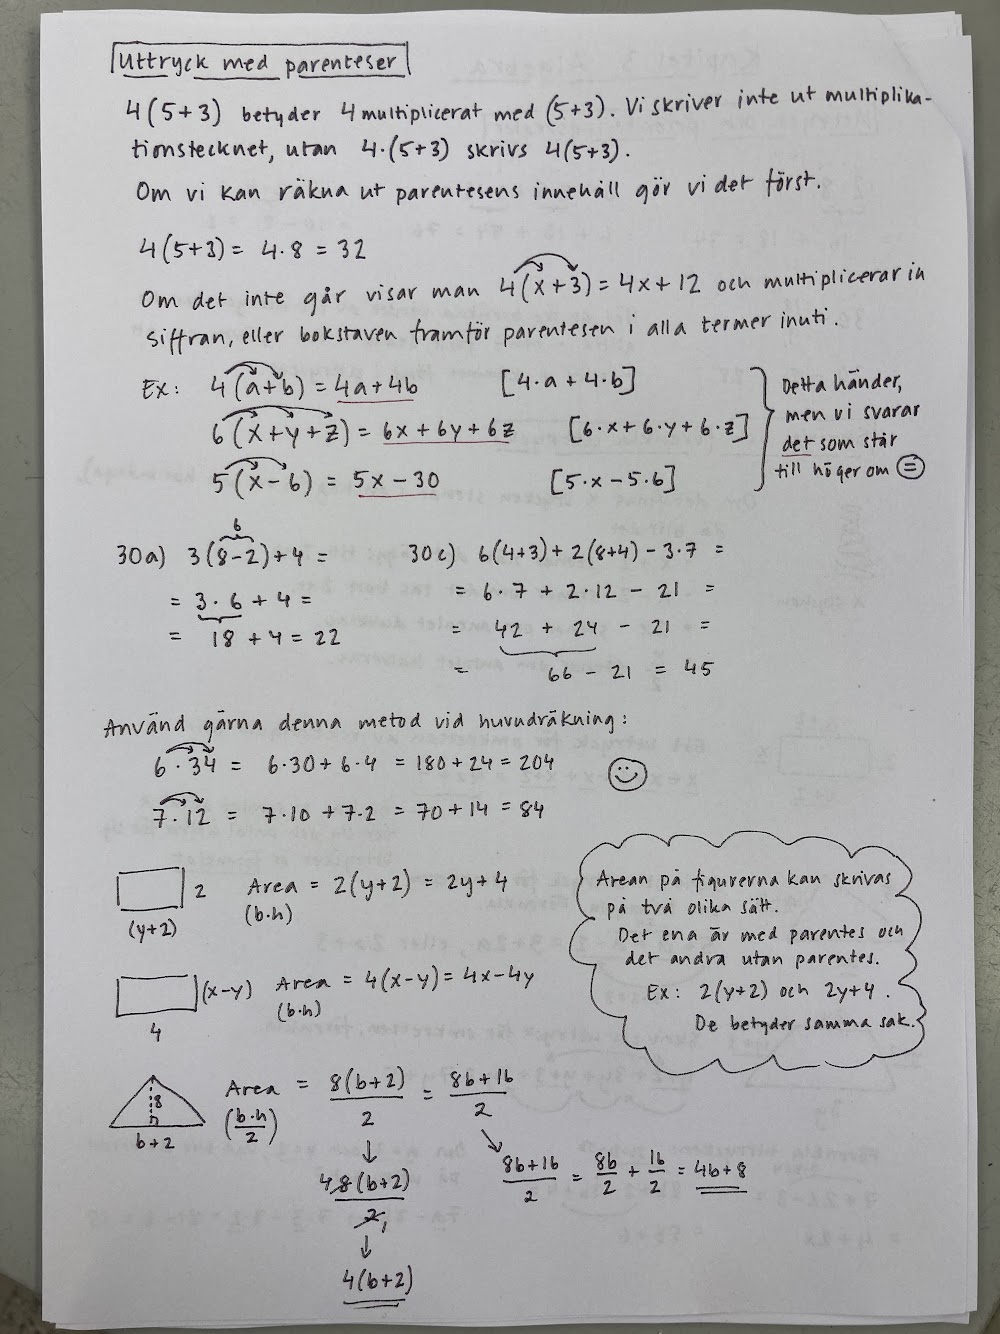 Uttryck med parenteser
4(5+3) betyder 4 multiplicerat med (5+3). Vi skriver inte ut multiplika-
tionstecknet, utan 4·(5+3) skrivs 4(5+3).
Om vi kan räkna ut parentesens innehåll gör vi det först.
4(5+3) = 4·8 = 32
Om det inte går visar man 4(x+3) = 4x+12 och multiplicerar in
siffran, eller bokstaven framför parentesen i alla termer inuti.
Ex: 4(a+b) = 4a+4b [4·a+4·b]
6(x+y+z) = 6x+6y+6z [6·x+6·y+6·z]
5(x-6) = 5x-30 [5·x-5·6]
Detta händer,
men vi svarar
det som står
till höger om =
30a) 3(8-2)+4 =
6
= 3·6+4 =
= 18+4 = 22
30c) 6(4+3)+2(8+4)-3·7 =
= 6·7 + 2·12 - 21 =
= 42 + 24 - 21 =
= 66 - 21 = 45
Använd gärna denna metod vid huvudräkning:
6·34 = 6·30+6·4 = 180+24 = 204
7·12 = 7·10+7·2 = 70+14 = 84
2 Area = 2(y+2) = 2y+4
(y+2) (b·h)
(x-y) Area = 4(x-y) = 4x-4y
4 (b·h)
Arean på figurerna kan skrivas
på två olika sätt.
Det ena är med parentes och
det andra utan parentes.
Ex: 2(y+2) och 2y+4.
De betyder samma sak.
8 Area = 8(b+2)/2 = 8b+16/2
b+2 (b·h/2)
8b+16/2 = 8b/2 + 16/2 = 4b+8
4 8(b+2)/2 1
4(b+2)